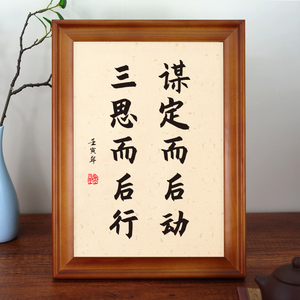 谋定而后动
三思而后行
壬寅年